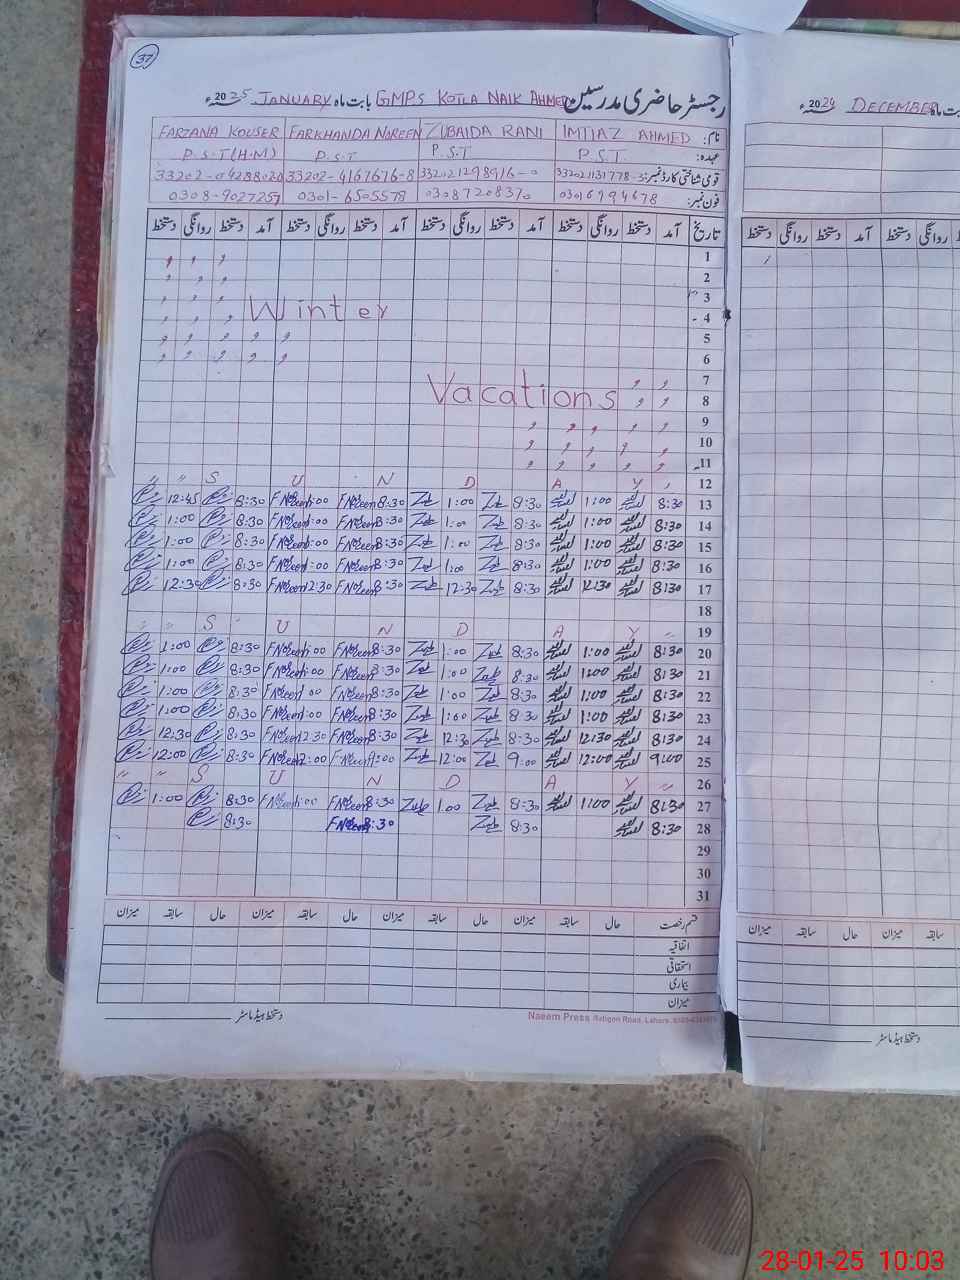 37
رجسٹر حاضری مدرسین GMPS KOTLA NAIK AHMED بابت ماہ JANUARY 2025ء
نام: IMTIAZ AHMED ZUBAIDA RANI FARKHANDA NOREEN FARZANA KOUSER
عہدہ: P.S.T. P.S.T P.S.T P.S.T (H.M)
قومی شناختی کارڈ نمبر: 332021131778-3 332021298916-0 33202-4167676-8 33202-0428802
فون نمبر: 03016994678 03087208370 0301-6505578 0308-9027257
تاریخ آمد دستخط روانگی دستخط آمد دستخط روانگی دستخط آمد دستخط روانگی دستخط آمد دستخط روانگی دستخط
1
2
3 Winter
4
5
6
7
8 Vacations
9
10
11
12 " " S U N D A Y "
13 8:30 1:00 8:30 Zub 1:00 Zub 8:30 FNoreen 1:00 FNoreen 8:30 12:45
14 8:30 1:00 8:30 Zub 1:00 Zub 8:30 FNoreen 1:00 FNoreen 8:30 1:00
15 8:30 1:00 8:30 Zub 1:00 Zub 8:30 FNoreen 1:00 FNoreen 8:30 1:00
16 8:30 1:00 8:30 Zub 1:00 Zub 8:30 FNoreen 1:00 FNoreen 8:30 1:00
17 8:30 12:30 8:30 Zub 12:30 Zub 8:30 FNoreen 12:30 FNoreen 8:30 12:30
18
19 " " S " U N D A Y "
20 8:30 1:00 8:30 Zub 1:00 Zub 8:30 FNoreen 1:00 FNoreen 8:30 1:00
21 8:30 1:00 8:30 Zub 1:00 Zub 8:30 FNoreen 1:00 FNoreen 8:30 1:00
22 8:30 1:00 8:30 Zub 1:00 Zub 8:30 FNoreen 1:00 FNoreen 8:30 1:00
23 8:30 1:00 8:30 Zub 1:00 Zub 8:30 FNoreen 1:00 FNoreen 8:30 1:00
24 8:30 12:30 8:30 Zub 12:30 Zub 8:30 FNoreen 12:30 FNoreen 8:30 12:30
25 9:00 12:00 9:00 Zub 12:00 Zub 9:00 FNoreen 12:00 FNoreen 8:30 12:00
26 " " S U N D A Y "
27 8:30 1:00 8:30 Zub 1:00 Zub 8:30 FNoreen 1:00 FNoreen 8:30 1:00
28 8:30 8:30 Zub 8:30 FNoreen 8:30
29
30
31
قسم رخصت حال سابقہ میزان حال سابقہ میزان حال سابقہ میزان حال سابقہ میزان
اتفاقیہ
استحقاقی
بیماری
میزان
Naeem Press Rattigon Road, Lahore.
دستخط ہیڈ ماسٹر
بابت ماہ DECEMBER 2024ء
دستخط روانگی دستخط آمد دستخط روانگی
میزان سابقہ حال میزان سابقہ
دستخط ہیڈ ماسٹر
28-01-25 10:03